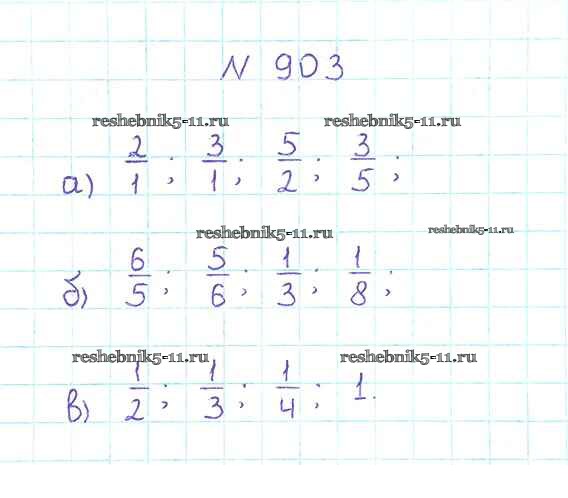 N 903
reshebnik5-11.ru reshebnik5-11.ru
а) 2/1; 3/1; 5/2; 3/5;
reshebnik5-11.ru reshebnik5-11.ru
б) 6/5; 5/6; 1/3; 1/8;
reshebnik5-11.ru reshebnik5-11.ru
в) 1/2; 1/3; 1/4; 1.